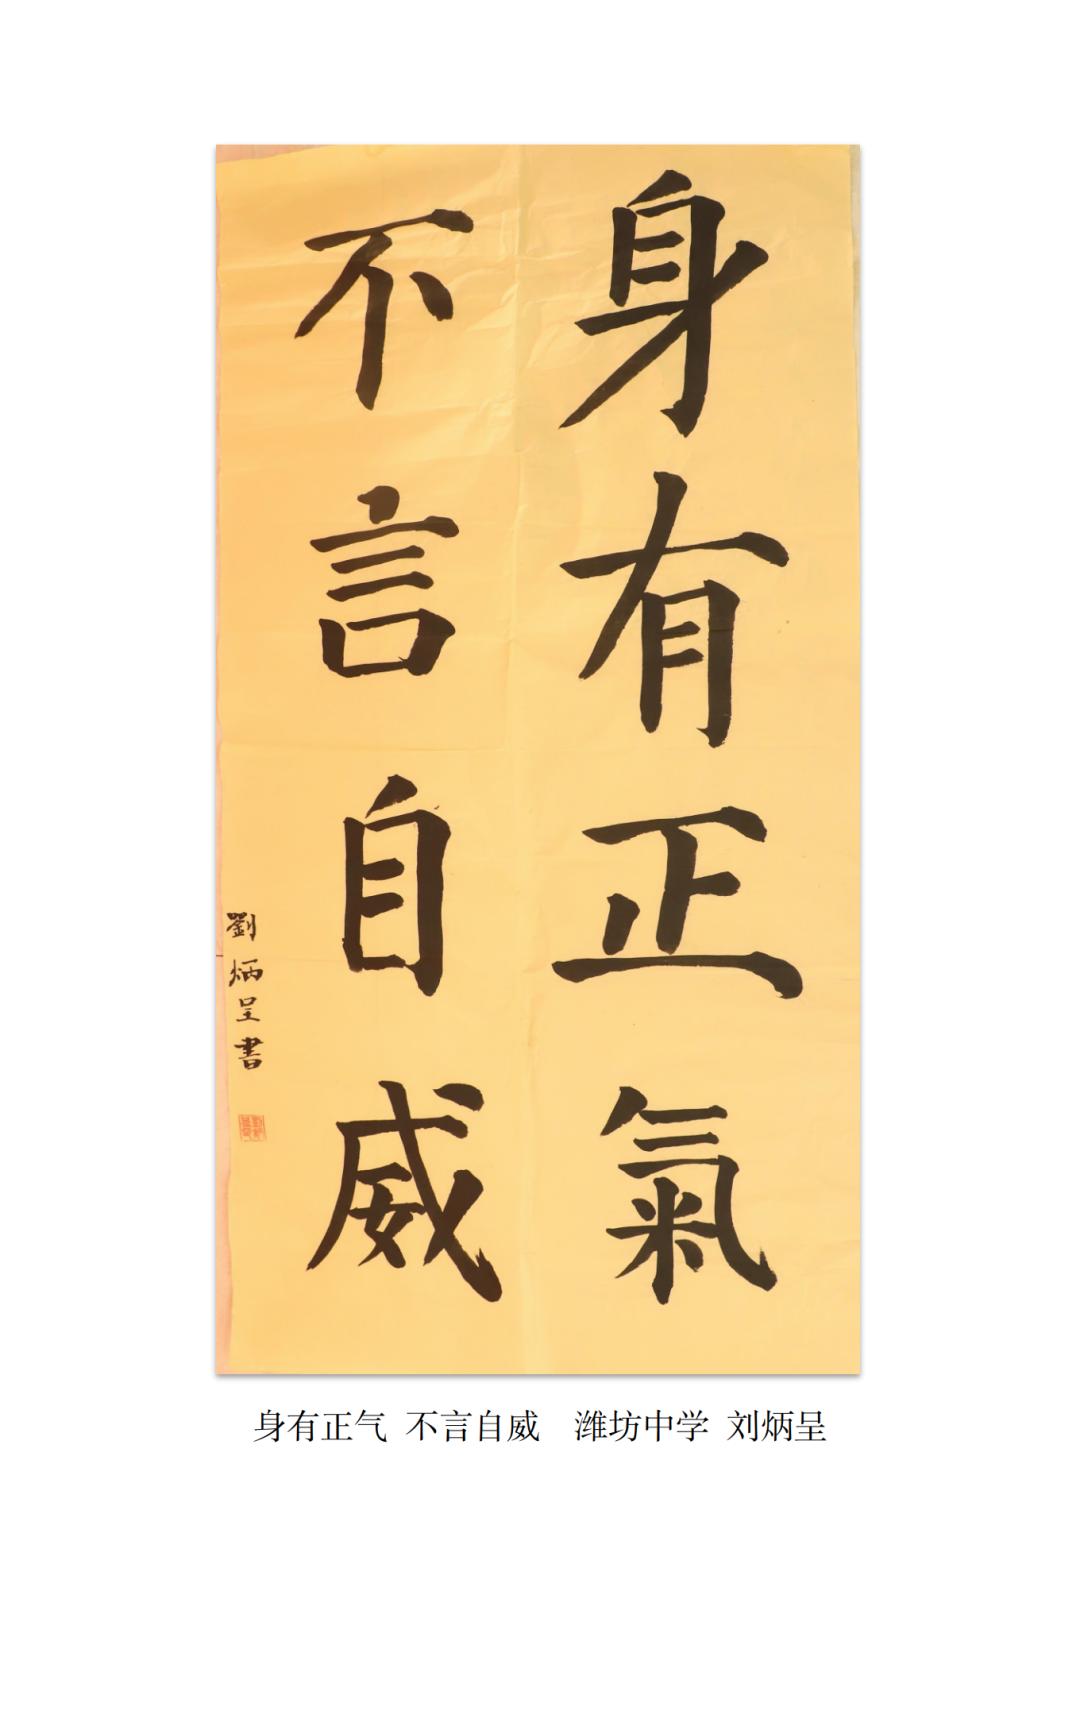 身有正氣
不言自威
劉炳呈書
身有正气 不言自威 潍坊中学 刘炳呈